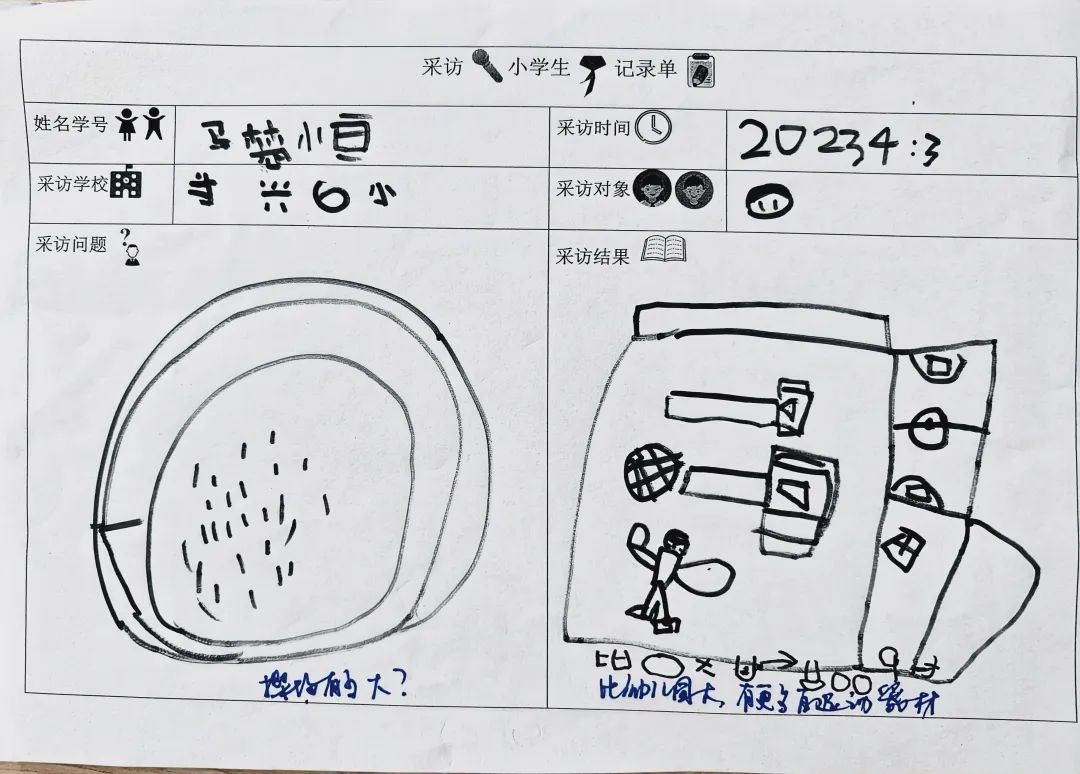 采访 小学生 记录单
姓名学号
采访时间
20234:3
采访学校
6小
采访对象
采访问题
采访结果
操场有多大?
比幼儿园大,有更多的运动器材